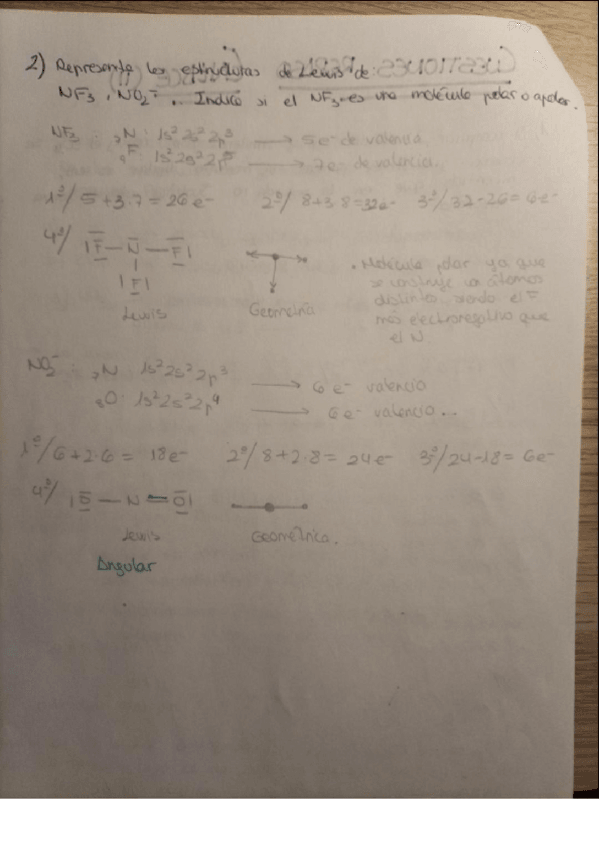 2) Representa las estructuras de Lewis de:
NF₃, NO₂⁻.. Indica si el NF₃ es una molécula polar o apolar.
NF₃ : ₇N: 1s² 2s² 2p³ → 5e⁻ de valencia
₉F: 1s² 2s² 2p⁵ → 7e⁻ de valencia.
1º/ 5+3·7=26e⁻ 2º/ 8+3·8=32e⁻ 3º/ 32-26=6e⁻
4º/ |F—N—F|
|F|
Lewis Geometría
• Molécula polar ya que
se construye átomos
distintos siendo el F
más electronegativo que
el N.
NO₂⁻ : ₇N 1s² 2s² 2p³ → 6e⁻ valencia
₈O: 1s² 2s² 2p⁴ → 6e⁻ valencia...
1º/ 6+2·6= 18e⁻ 2º/ 8+2·8= 24e⁻ 3º/ 24-18= 6e⁻
4º/ |O—N=O|
Lewis Geométrica.
Angular